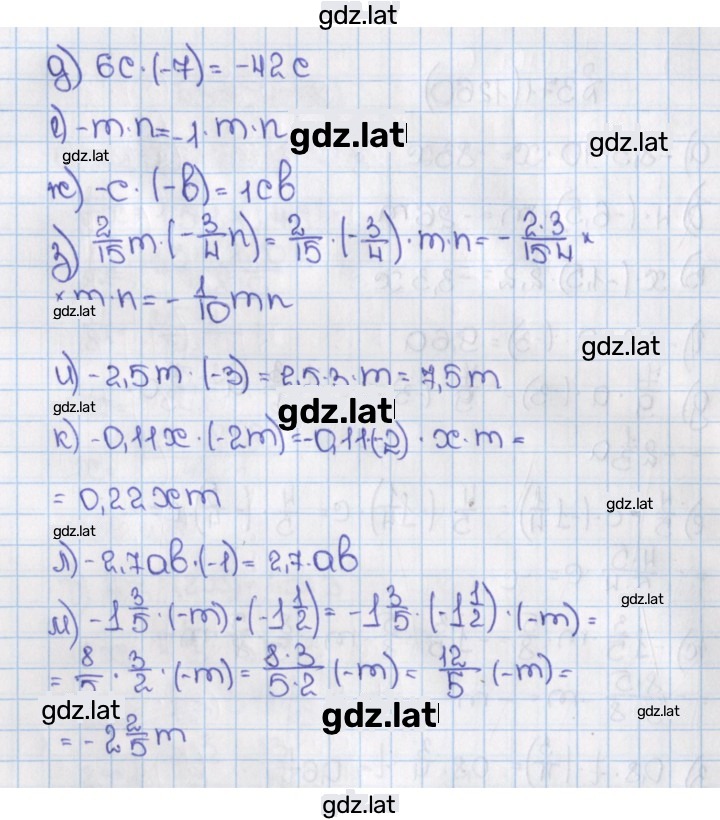 gdz.lat
д) 6c·(-7) = -42c
е) -m·n = -1·m·n gdz.lat
gdz.lat
gdz.lat
ж) -c·(-b) = 1cb
з) 2/15 m·(-3/4 n) = 2/15·(-3/4)·m·n = - 2·3/15·4 ×
× m·n = - 1/10 mn
gdz.lat
gdz.lat
и) -2,5m·(-3) = 2,5·3·m = 7,5m
gdz.lat
gdz.lat
к) -0,11x·(-2m) = -0,11·(-2)·x·m =
= 0,22xm
gdz.lat
gdz.lat
л) -2,7ab·(-1) = 2,7·ab
gdz.lat
м) -1 3/5·(-m)·(-1 1/2) = -1 3/5·(-1 1/2)·(-m) =
= 8/5·3/2·(-m) = 8·3/5·2 (-m) = 12/5·(-m) =
gdz.lat
gdz.lat
gdz.lat
= -2 2/5 m
gdz.lat